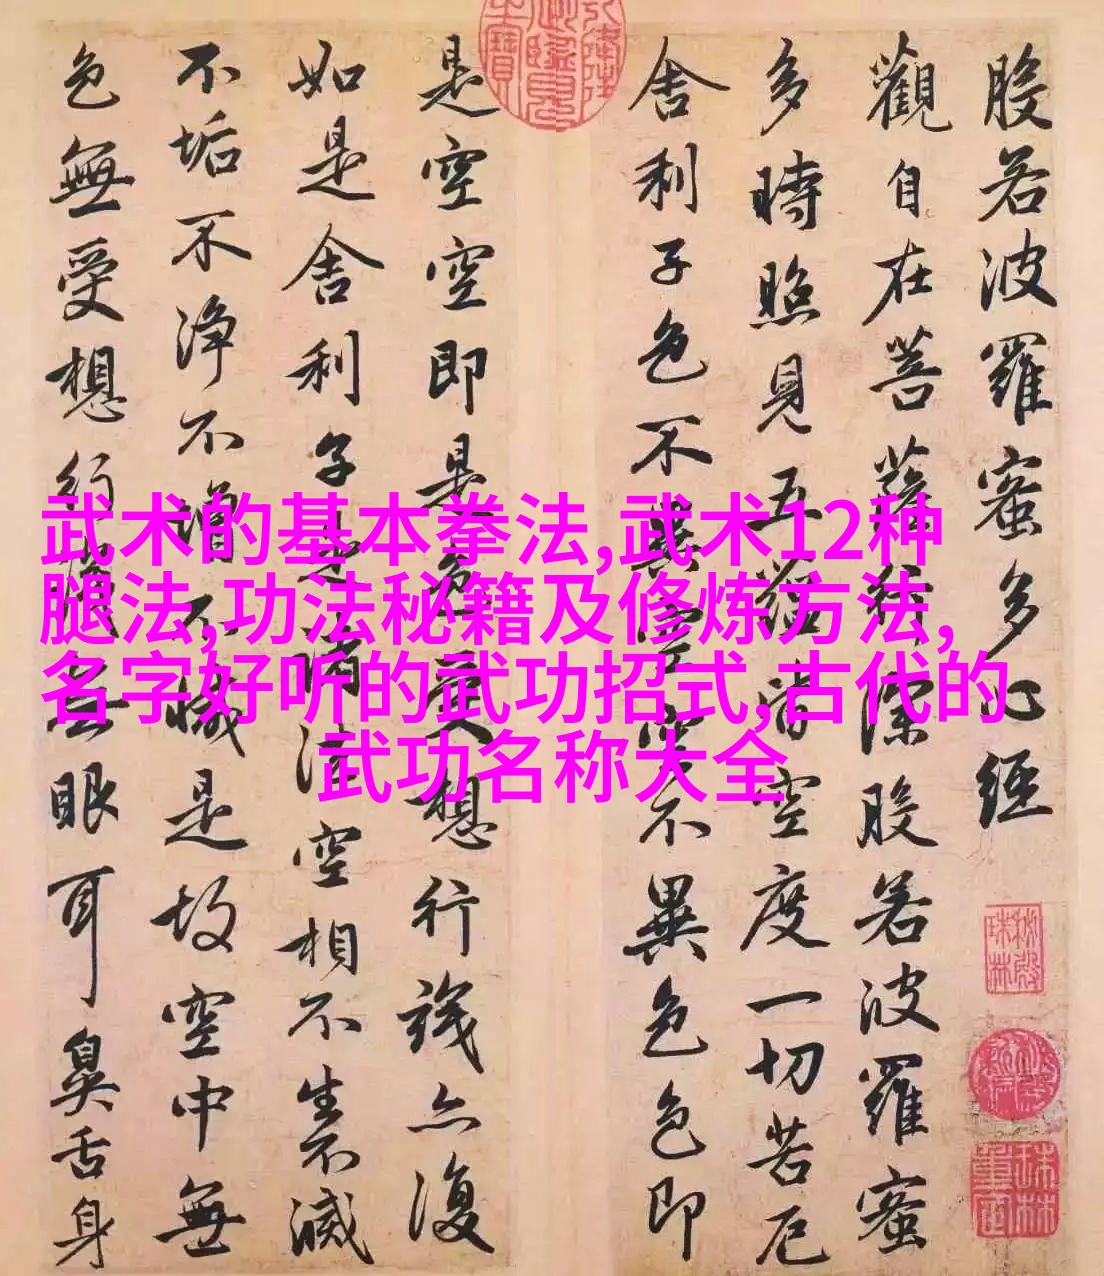 武术的基本拳法,武术12种
腿法,功法秘籍及修炼方法,
名字好听的武功招式,古代的
武功名称大全
般若波羅蜜多心經
觀自在菩薩行深般若波羅蜜
多時照見五蘊皆空度一切苦厄
舍利子色不異空空不異色色即
是空空即是色受想行識亦復
如是舍利子是諸法空相不生不滅
不垢不淨不增不減是故空中無
色無受想行識無眼耳鼻舌身